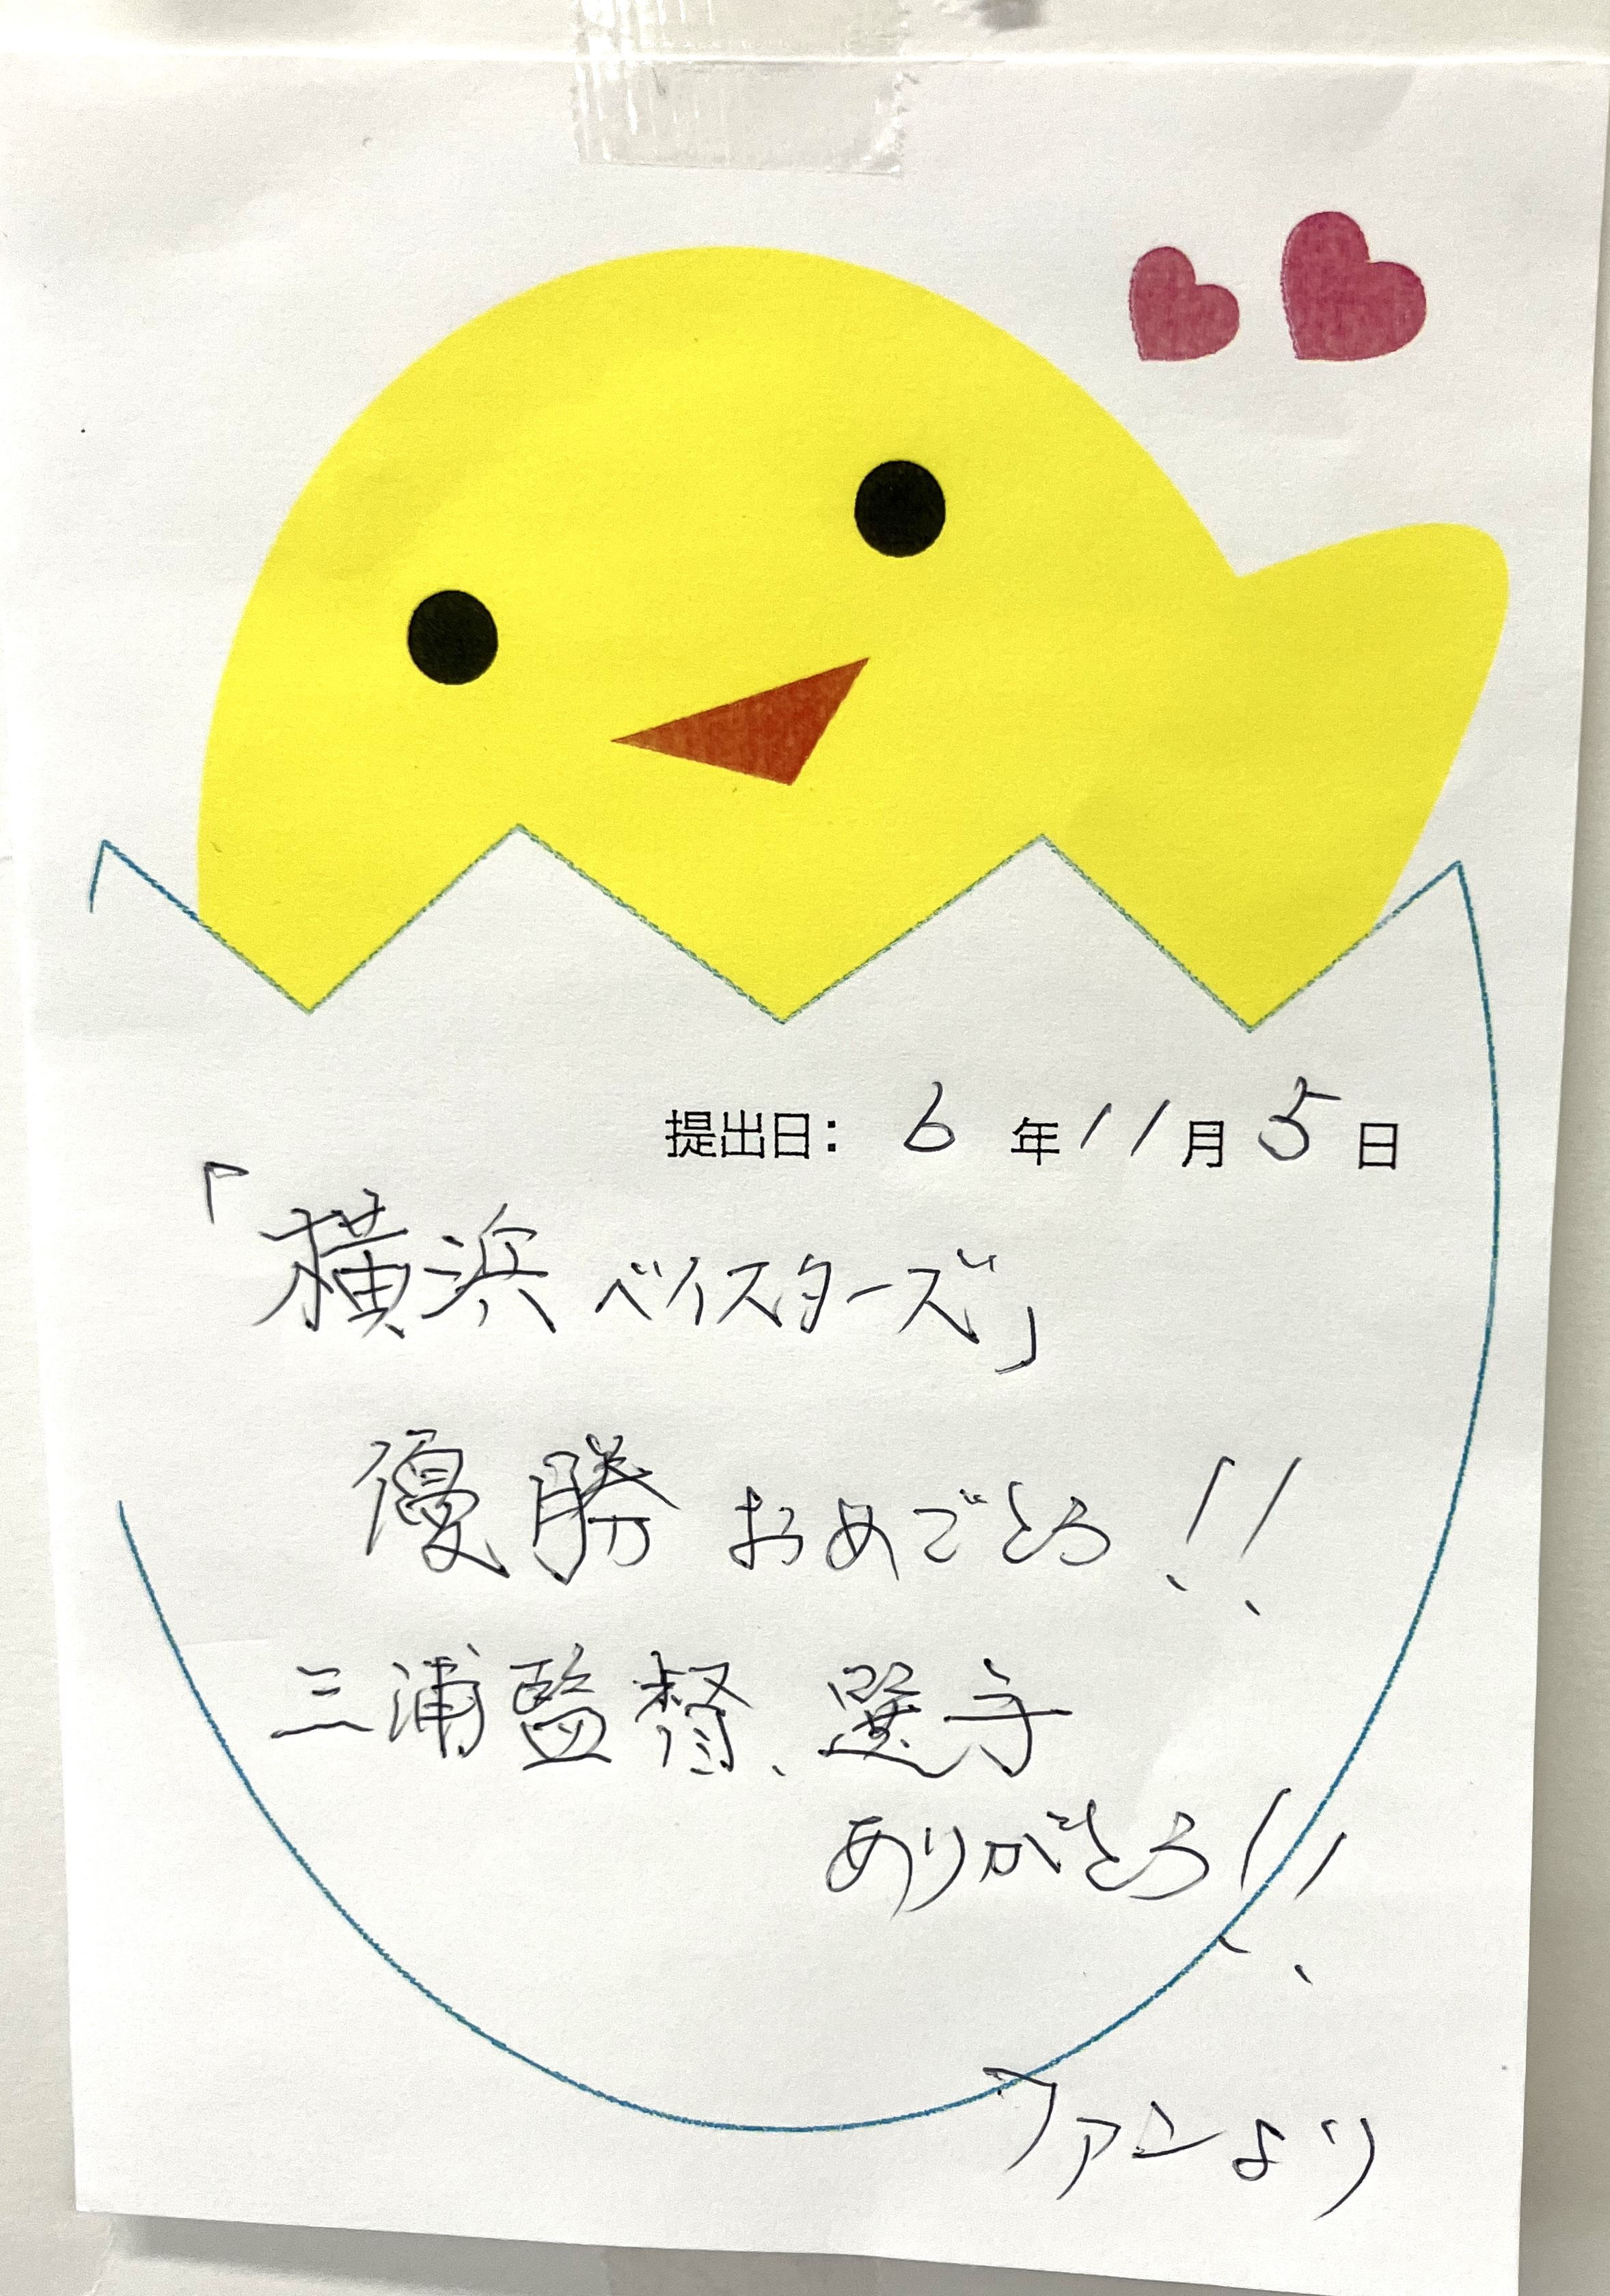 提出日: 6 年 11 月 5 日
「横浜ベイスターズ」
優勝おめでとう!!
三浦監督、選手
ありがとう!!
ファンより